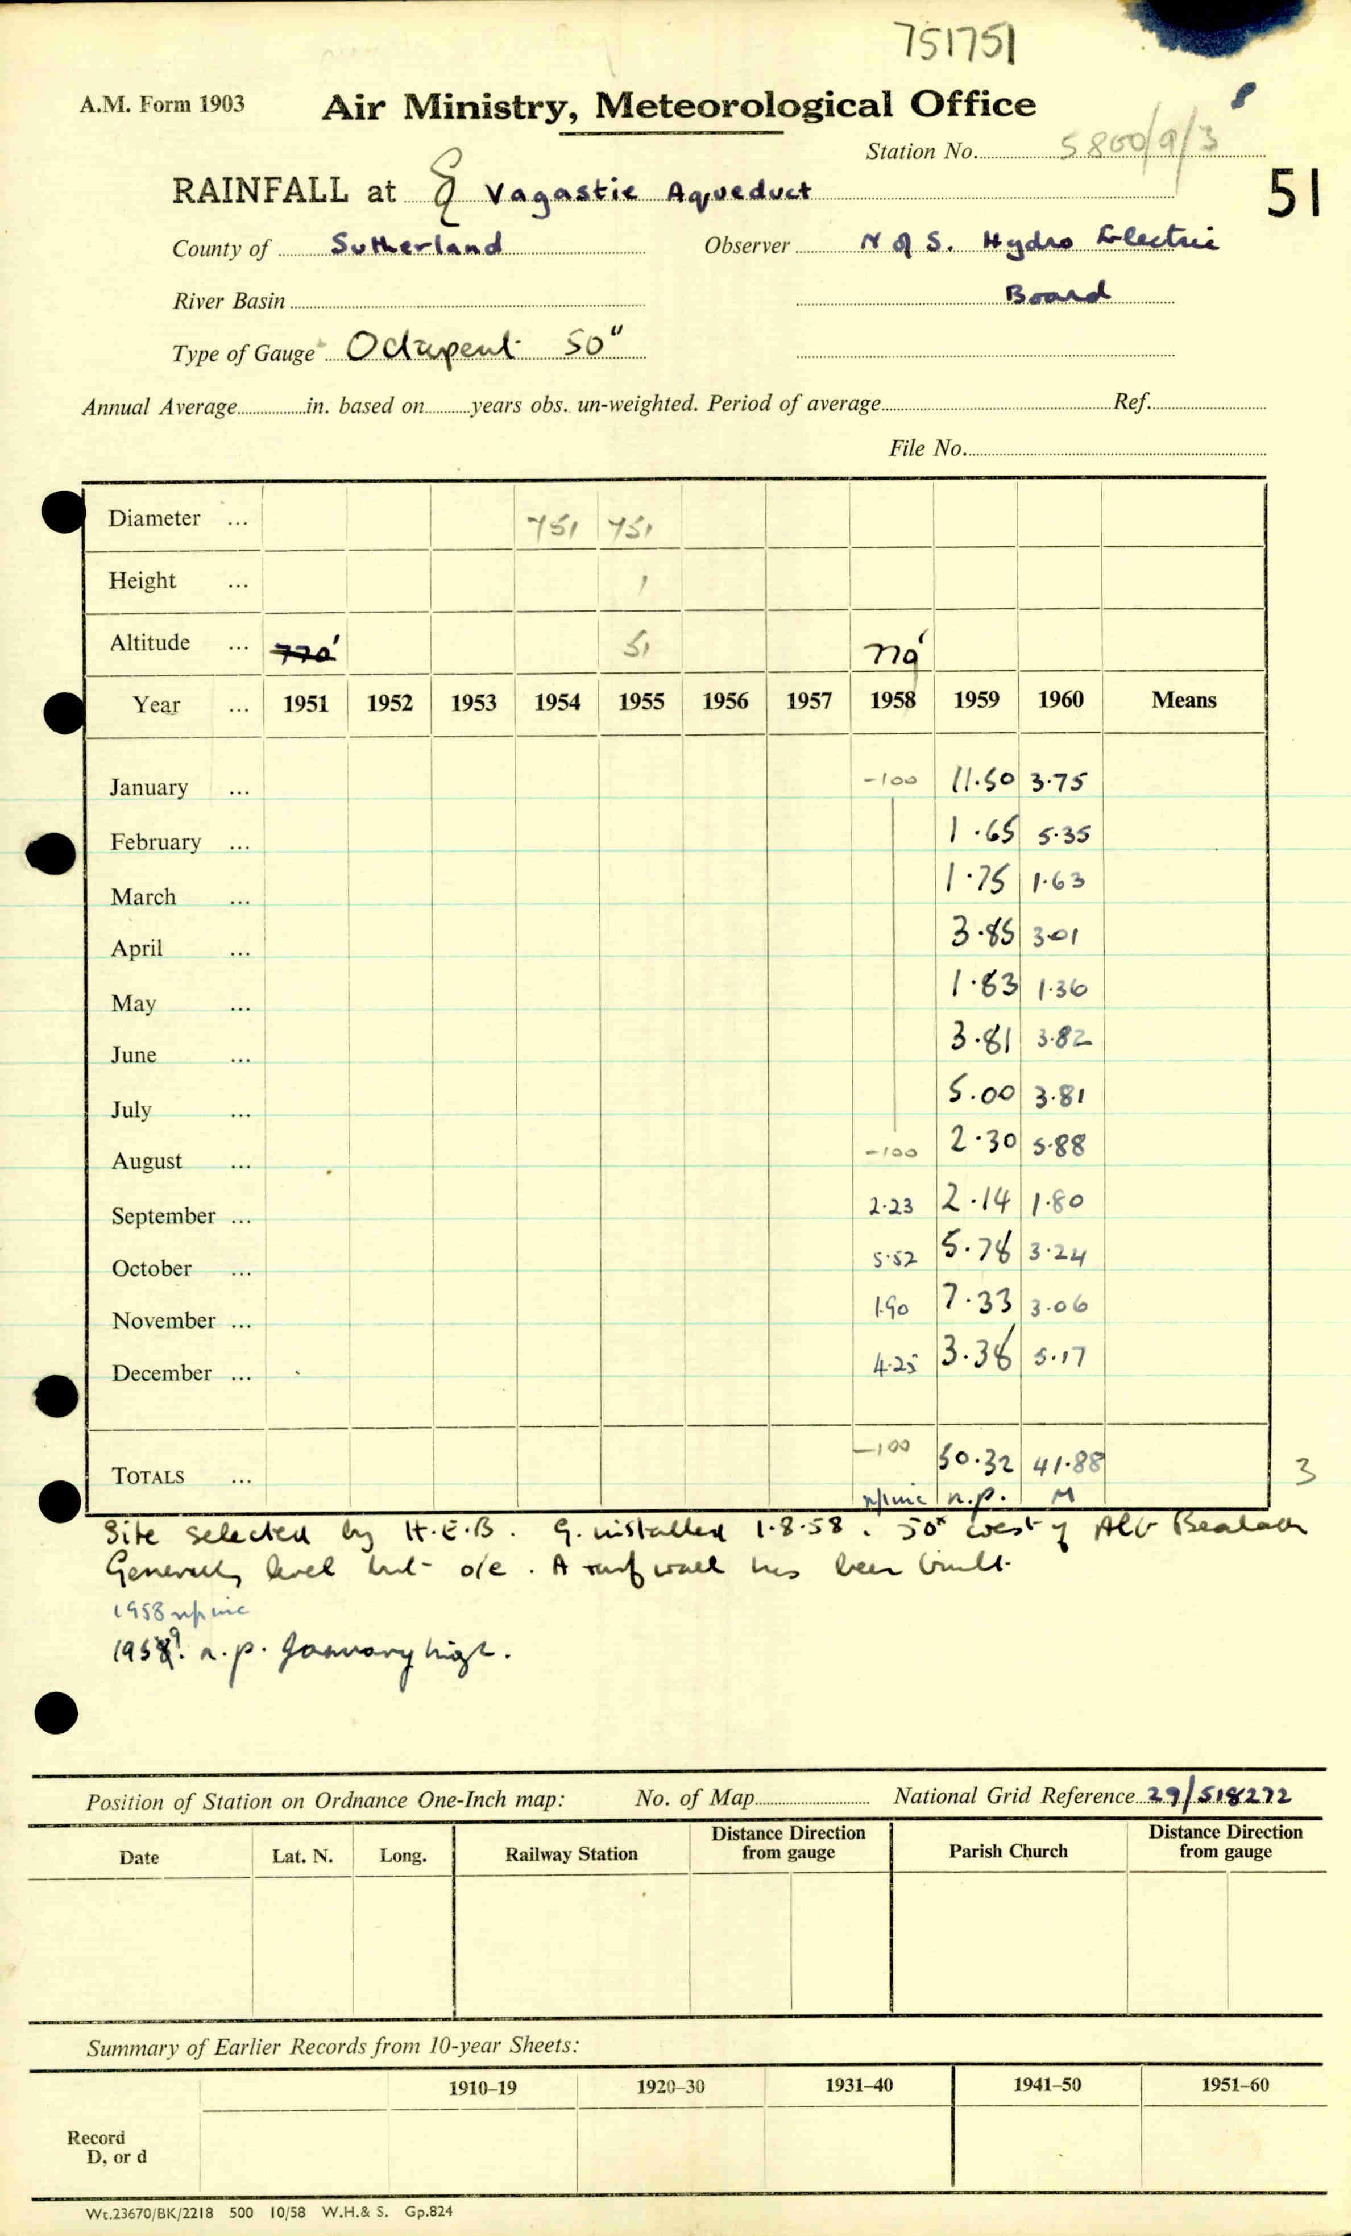 751751
A.M. Form 1903 Air Ministry, Meteorological Office
Station No. 5800/9/3
RAINFALL at Vagastie Aqueduct 51
County of Sutherland Observer N of S. Hydro Electric
River Basin Board
Type of Gauge Octapent 50"
Annual Average in. based on years obs. un-weighted. Period of average Ref.
File No.
Diameter ... 751 751
Height ... 1
Altitude ... 770' 51 770'
Year ... 1951 1952 1953 1954 1955 1956 1957 1958 1959 1960 Means
January ... -100 11.50 3.75
February ... 1.65 5.35
March ... 1.75 1.63
April ... 3.85 3.01
May ... 1.83 1.36
June ... 3.81 3.82
July ... 5.00 3.81
August ... -100 2.30 5.88
September ... 2.23 2.14 1.80
October ... 5.52 5.78 3.24
November ... 1.90 7.33 3.06
December ... 4.25 3.38 5.17
TOTALS ... -100 50.32 41.88 3
n/p inc n.p. M
Site selected by H.E.B. G. installed 1.8.58. 50x west of Allt Bealach
Generally level but o/e. A turf wall has been built.
1958 n/p inc
1959. n.p. January high.
Position of Station on Ordnance One-Inch map: No. of Map National Grid Reference 29/518272
Date Lat. N. Long. Railway Station Distance Direction from gauge Parish Church Distance Direction from gauge
Summary of Earlier Records from 10-year Sheets:
1910-19 1920-30 1931-40 1941-50 1951-60
Record
D, or d
Wt.23670/BK/2218 500 10/58 W.H.& S. Gp.824